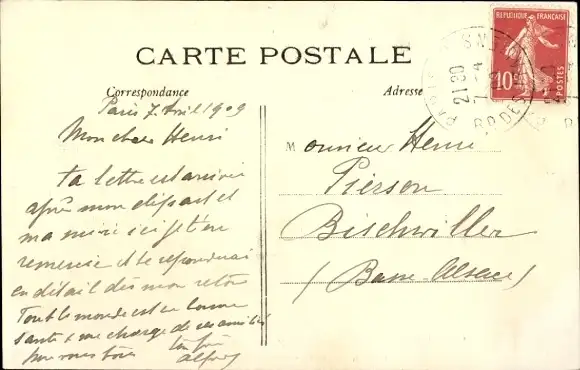 CARTE POSTALE
Correspondance
Adresse
REPUBLIQUE FRANÇAISE
10c
POSTES
21 30
Paris 7 Avril 1909
Mon cher Henri
ta lettre est arrivée
après mon départ et
ma mère ici je t'en
remercie et te répondrai
en détail dès mon retour
Tout le monde est en bonne
santé & me charge de ses amitiés
pour vous tous
Monsieur Henri
Pierson
Bischwiller
(Basse-Alsace)